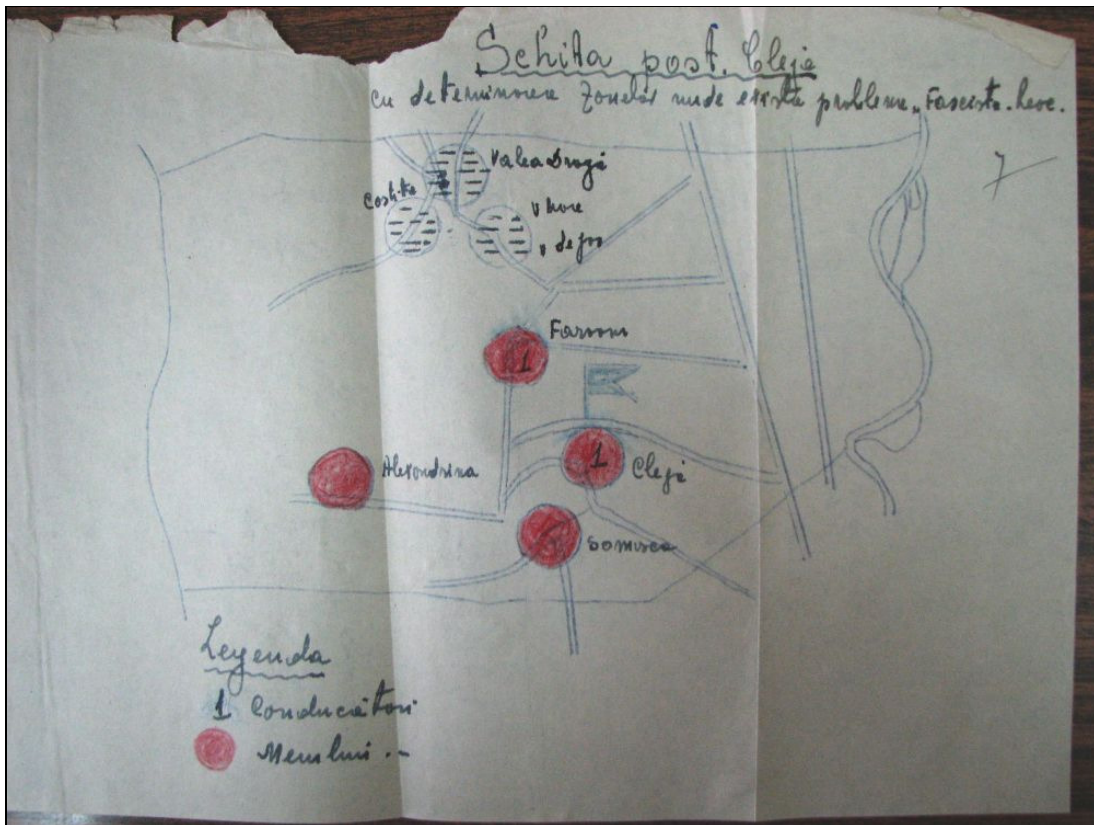 Schita post. Cleja
cu determinarea zonelor unde exista problema „Fascista.
7
Valea Dragă
Costita
de jos
Faraoni
1
Alexandrina
1
Cleja
Somusca
Legenda
1 Conducători
Membrii . –